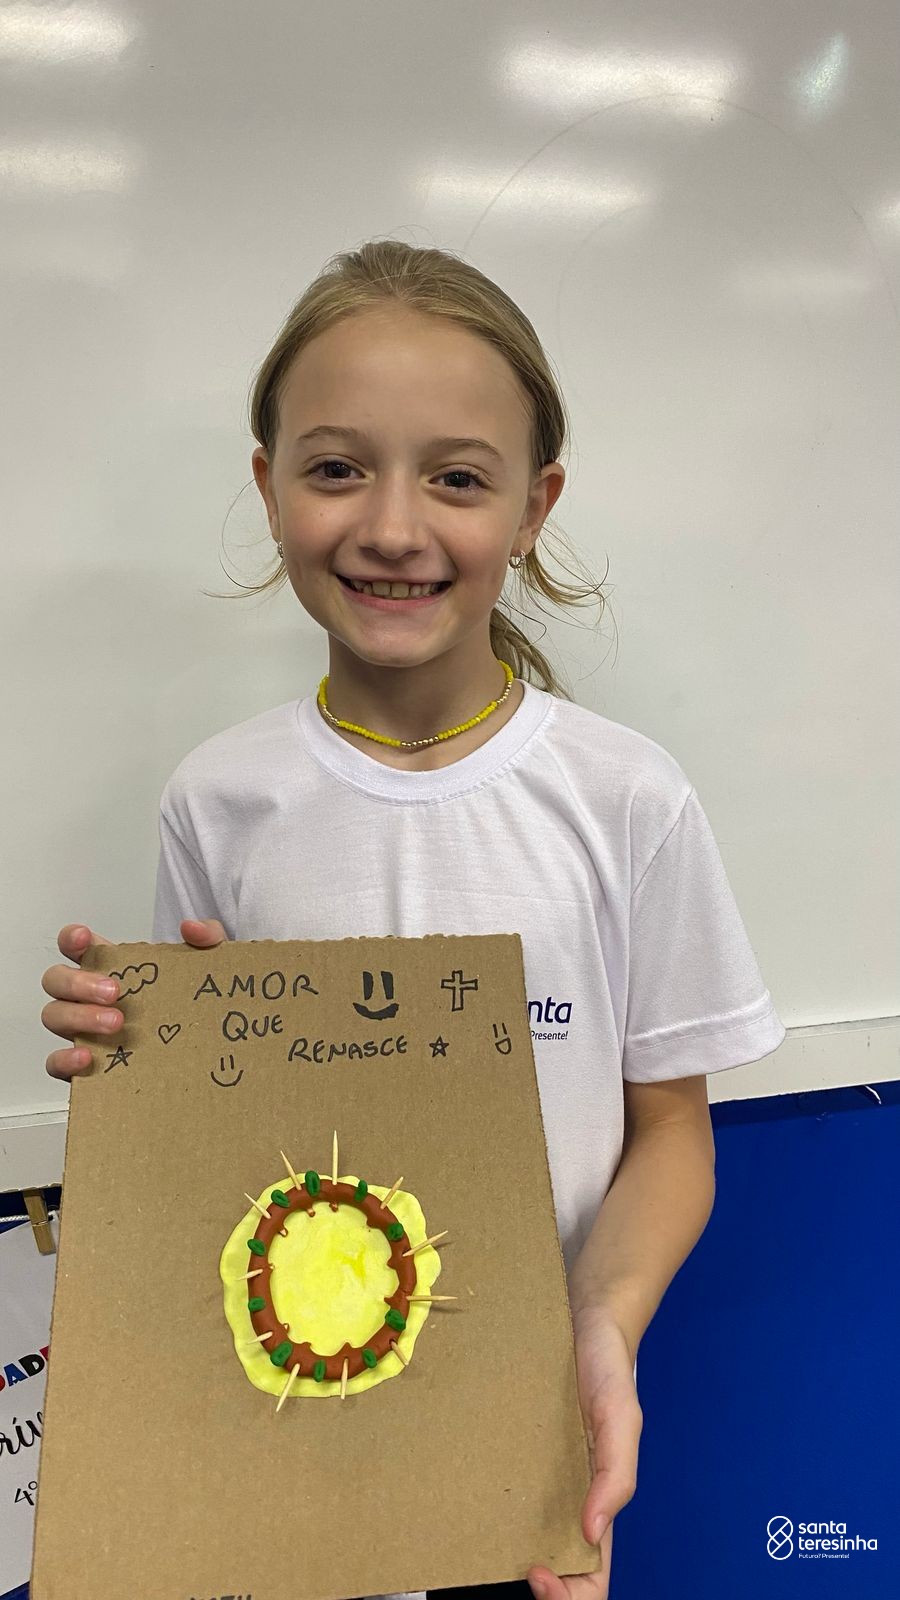 AMOR
QUE
RENASCE
nta
Presente!
4º
santa
teresinha
Futuro? Presente!